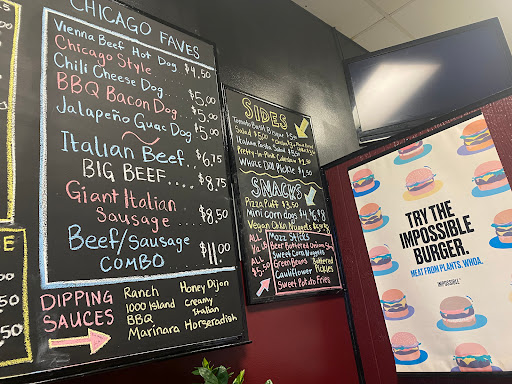 CHICAGO FAVES
Vienna Beef Hot Dog $4.50
Chicago Style.. $5.00
Chili Cheese Dog... $5.00
BBQ Bacon Dog.. $5.00
Jalapeño Guac Dog $5.00
Italian Beef.. $6.75
BIG BEEF.... $8.75
Giant Italian
Sausage ..... $8.50
Beef/sausage
COMBO $11.00
DIPPING
SAUCES
Ranch
1000 Island
BBQ
Marinara
Honey Dijon
Creamy
Italian
Horseradish
50
50
SIDES
Salad $5.00
Pretty-in-Pink Coleslaw
Whole Dill Pickle $1.00
SNACKS
Pizza Puff $3.50
Mini corn dogs
Vegan Chkn Nuggets
ALL
Mozz Sticks
Beer Battered Onion
Sweet Corn Nuggets
Green Beans
Battered
Pickles
Cauliflower
Sweet Potato Fries
ALL
$5.50
TRY THE
IMPOSSIBLE
BURGER.
MEAT FROM PLANTS. WHOA.
IMPOSSIBLE